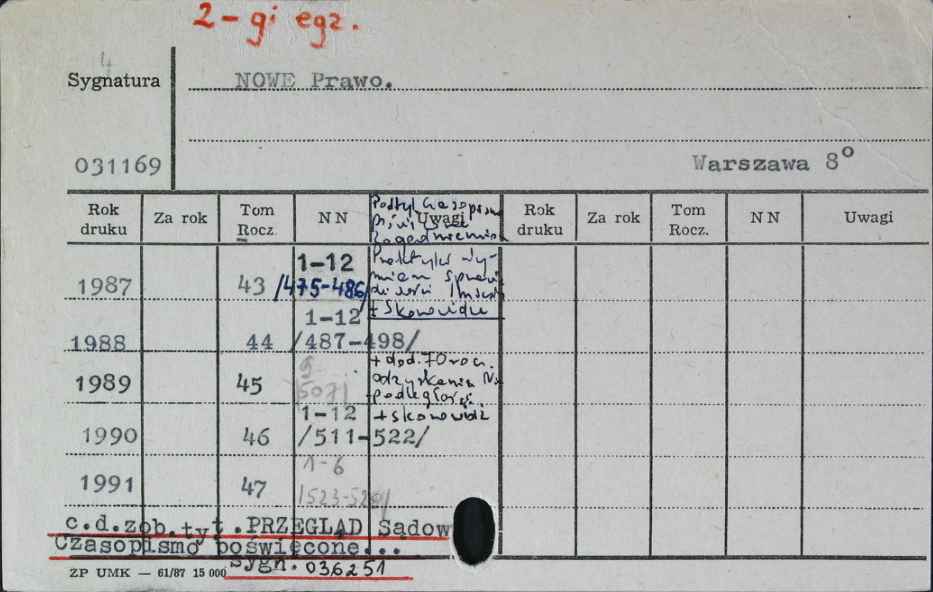 2-gi egz.
4
Sygnatura NOWE Prawo.
031169 Warszawa 8°
Rok druku Za rok Tom Rocz. NN Uwagi Rok druku Za rok Tom Rocz. NN Uwagi
Podtyt Czasopismo
Praktyka wy-
1987 43 1-12 /475-486/
+ Skorowidz
1988 44 1-12 /487-498/
+ dod. 70 rocz.
odzyskania Nie
podległości
1989 45 9
1990 46 1-12 /511-522/ + skorowidz
1991 47 1-6
c.d.zob.tyt.PRZEGLĄD Sądow
Czasopismo poświęcone...
Sygn. 036251
ZP UMK — 61/87 15 000